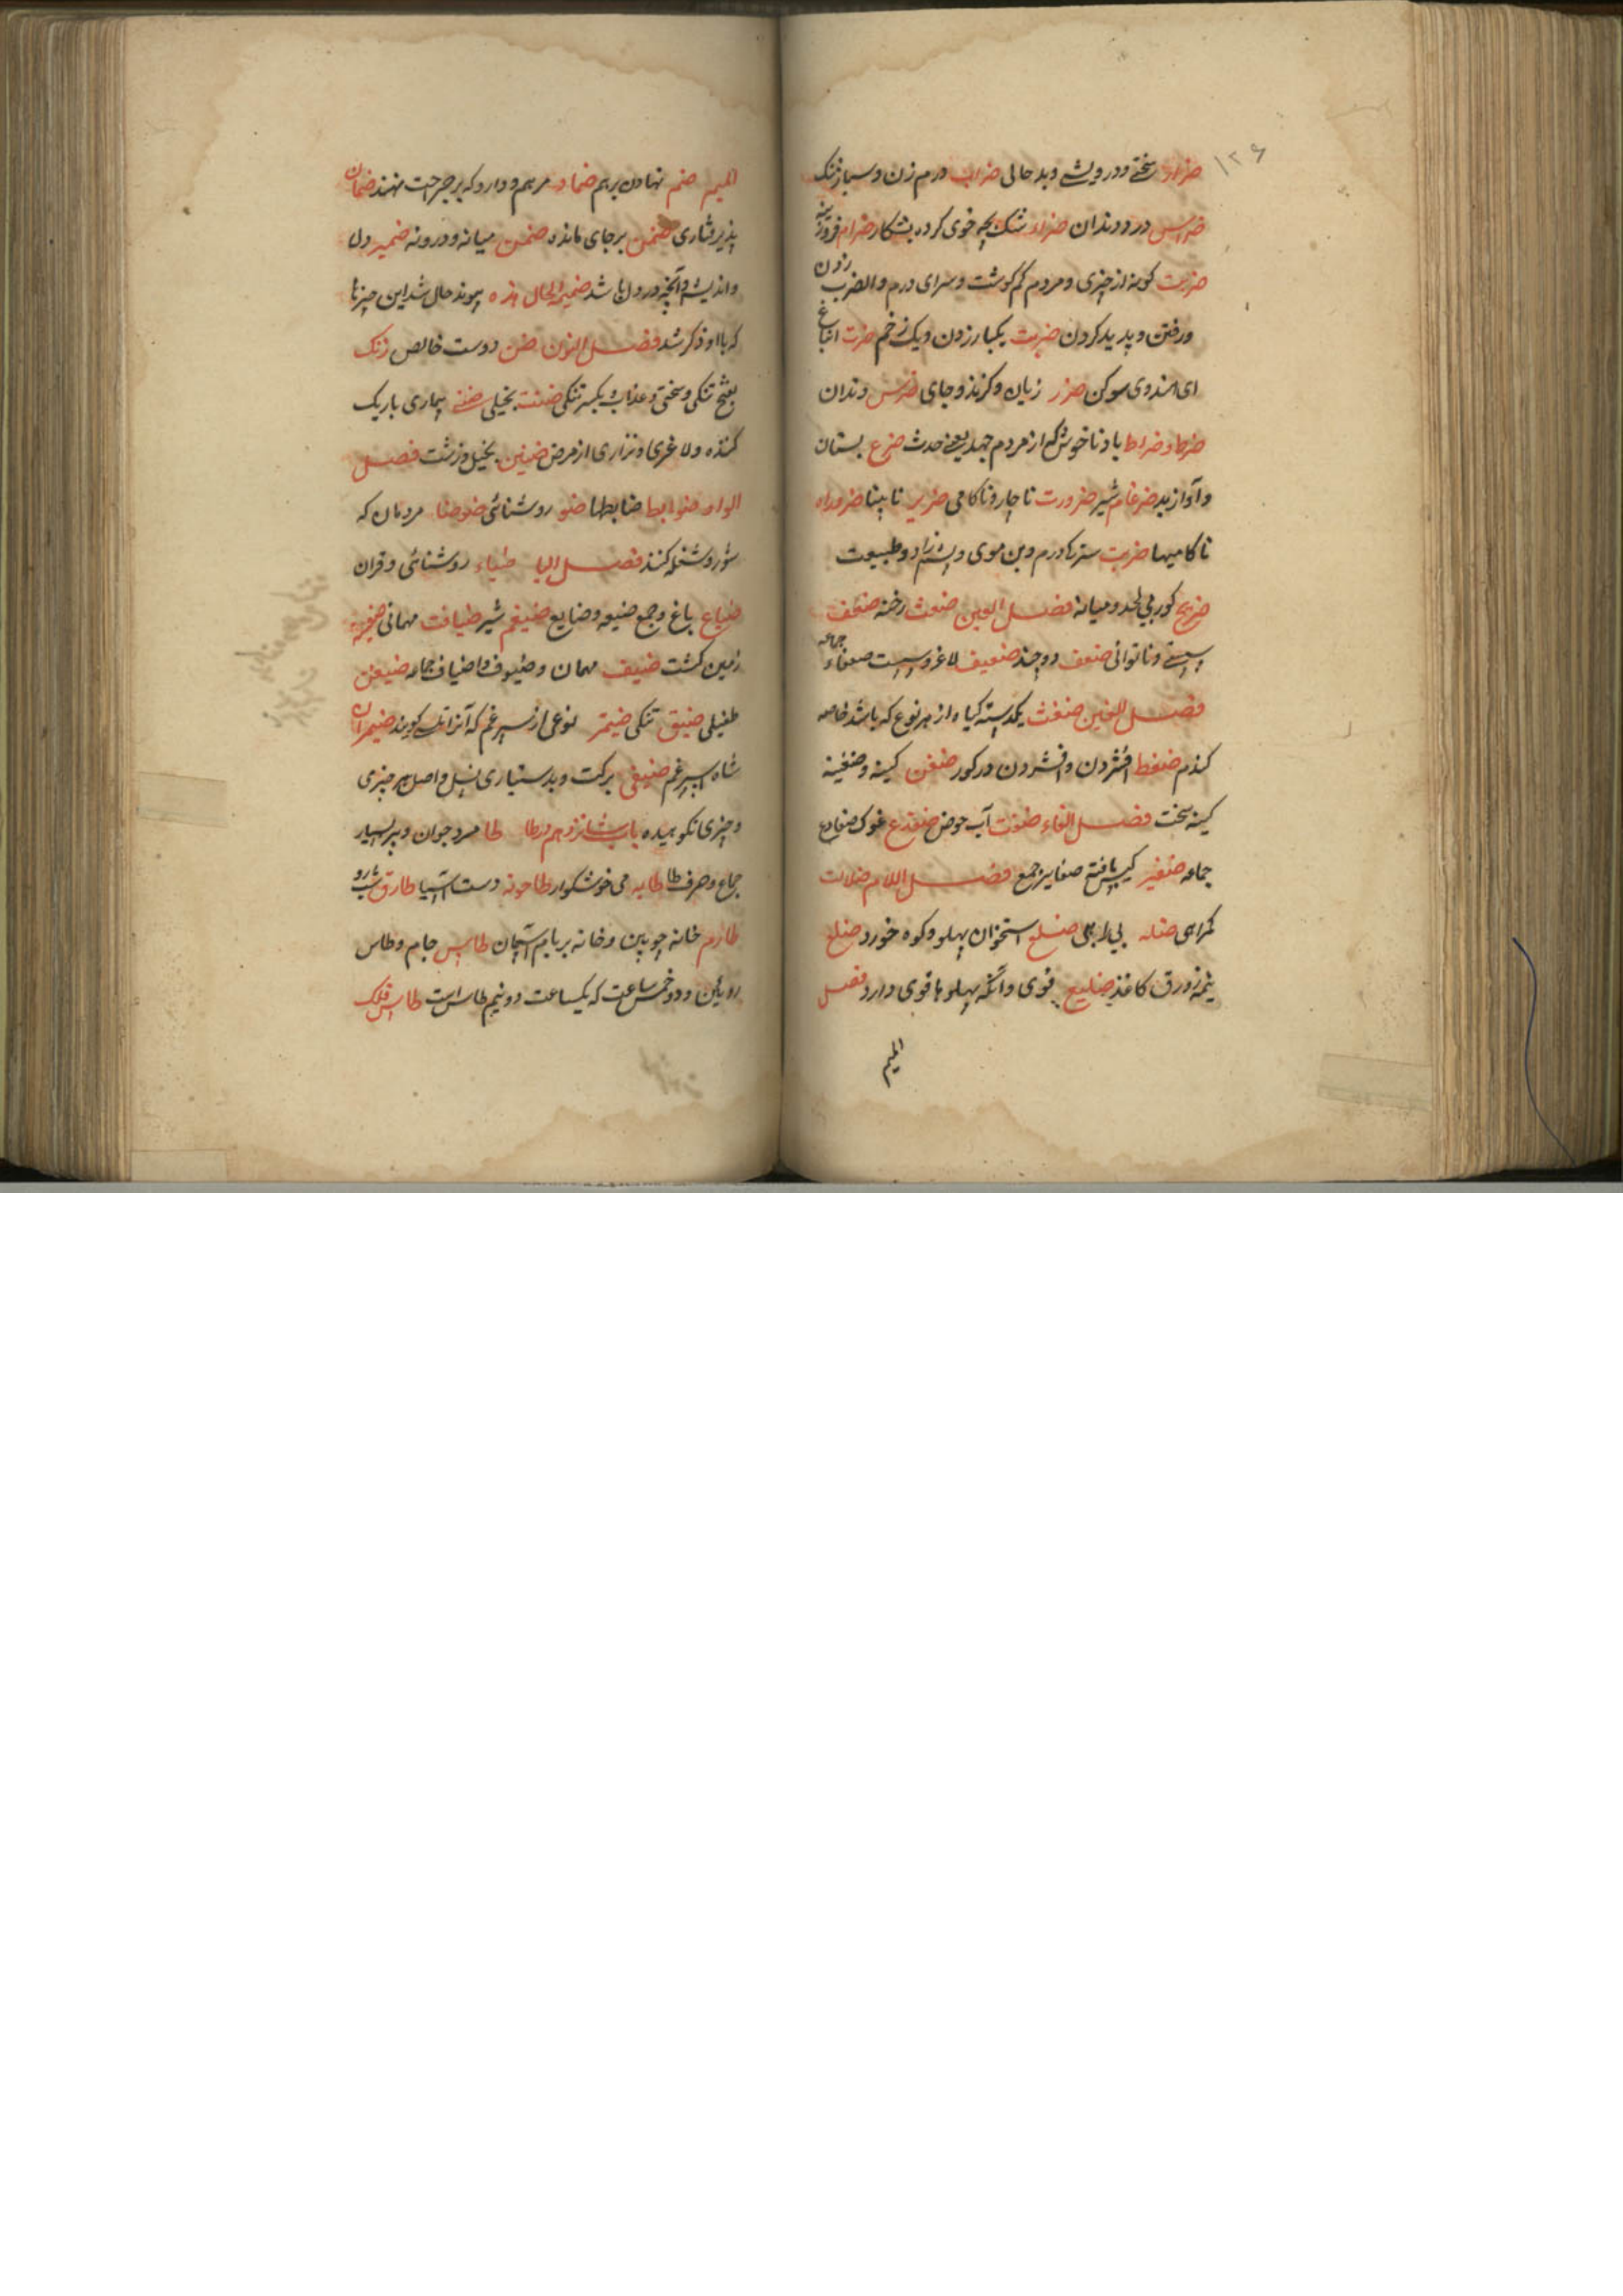 ۱۲۶
ضرار سختی و درویشی و بد حالی ضراب درم زن و سباز زنک
ضراس درد دندان ضراء سک بچه خوی کرده بشکار ضرام فروزینه
ضرب کونه از چیزی و مردم کم کوشت و سرای درم و الضرب زدن
و رفتن و پدید کردن ضربت یکبار زدن و یک زخم ضرت انباغ
ای اسندوی سوکن ضرر زیان و کزند و جای ضرس دندان
ضرط و ضراط باد ناخوش که از مردم جهد یعنی حدث ضرع بستان
و آواز بد ضرغام شیر ضرورت ناچار و ناکامی ضریر نابینا ضرورات
ناکامیها ضریبت ستر کادرم و بن موی و پشم زاد و طبیعت
ضریح کور بی لحد و میانه فصل العین ضعث رخنه ضعف
سستی و ناتوانی ضعف دو چند ضعیف لاغر و سست ضعفاء جماعه
فصل الغین ضغث یکدسته کیاه از هر نوع که باشد خاصه
کندم ضغط افشردن و افشردن در کور ضغن کینه و ضغینه
کینه سخت فصل الفاء ضفت آب حوض ضفدع غوک ضفادع
جماعه ضفیر کیس بافته ضفایر جمع فصل اللام ضلالت
کمراهی ضله بی راهی ضلع استخوان پهلو و کوه خورد ضلع
نیمه زورق کاغذ ضلیع قوی و آنکه پهلوها قوی دارد فصل
المیم
المیم ضم نهادن بر هم ضماد مرهم و دارو که بر جراحت نهند ضمان
پذیرفتاری ضمن بر جای مانده ضمن میانه و درونه ضمیر دل
و اندیشه و آنچه در دل باشد ضمیر الحال هذه پیوند حال شد این چیزها
که با او ذکر شد فصل النون ضن دوست خالص ضنک
بفتح تنکی و سختی و عذاب و بکسر تنکی ضننت بخیلی ضنی بیماری باریک
کننده و لاغری و نزاری از مرض ضنین بخیل و زشت فصل
الواو ضوابط ضابطها ضو روشنائی ضوضا مردمان که
شور و شغله کنند فصل الیا ضیاء روشنائی و قران
ضیاع باغ و جمع ضیعه و ضایع ضیغم شیر ضیافت مهمانی ضیعه
زمین کشت ضیف مهمان و ضیوف و اضیاف جماعه ضیفن
طفیلی ضیق تنکی ضیمر نوعی از سپرغم که آنرا کویند ضیمران
شاه سپرغم ضیفی برکت و بد بسیاری نسل و اصل هر چیزی
و چیزی نکوهیده باب شانزدهم در طا طا مرد جوان و پر بسیار
جماع و حرف طا طابه می خوشکوار طاحونه دست آسیا طارق شب رو
طارم خانه چوبین و خانه بر بام آسمان طاس جام و طاس
رویین و دو خمس ساعت که یکساعت دو نیم طاس است طاس فلک